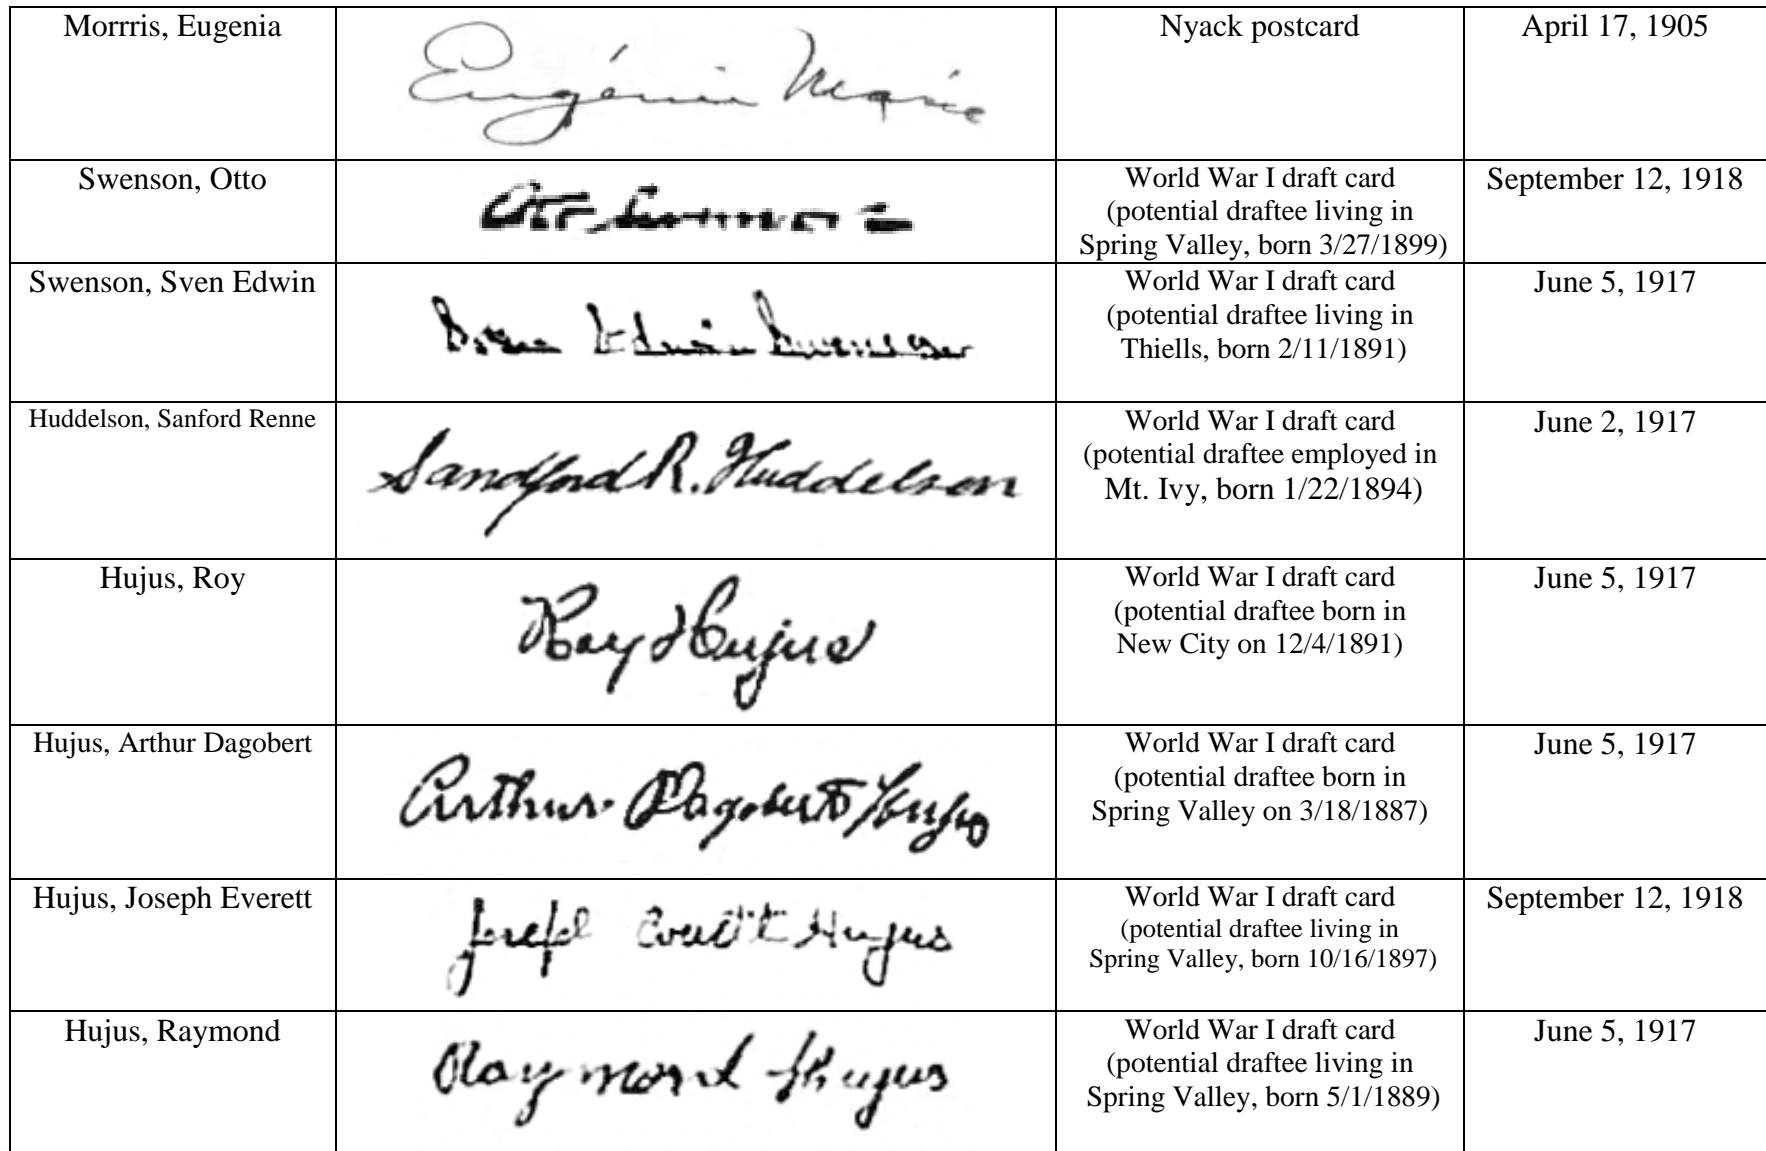 Morrris, Eugenia
Eugénie Marie
Nyack postcard
April 17, 1905
Swenson, Otto
Otto Swenson
World War I draft card
(potential draftee living in
Spring Valley, born 3/27/1899)
September 12, 1918
Swenson, Sven Edwin
Sven Edwin Swenson
World War I draft card
(potential draftee living in
Thiells, born 2/11/1891)
June 5, 1917
Huddelson, Sanford Renne
Sandford R. Huddelson
World War I draft card
(potential draftee employed in
Mt. Ivy, born 1/22/1894)
June 2, 1917
Hujus, Roy
Roy Hujus
World War I draft card
(potential draftee born in
New City on 12/4/1891)
June 5, 1917
Hujus, Arthur Dagobert
Arthur Dagobert Hujus
World War I draft card
(potential draftee born in
Spring Valley on 3/18/1887)
June 5, 1917
Hujus, Joseph Everett
Joseph Everett Hujus
World War I draft card
(potential draftee living in
Spring Valley, born 10/16/1897)
September 12, 1918
Hujus, Raymond
Raymond Hujus
World War I draft card
(potential draftee living in
Spring Valley, born 5/1/1889)
June 5, 1917